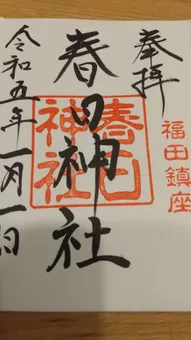 奉拝
福田鎮座
春日神社
春日神社
令和五年一月一日